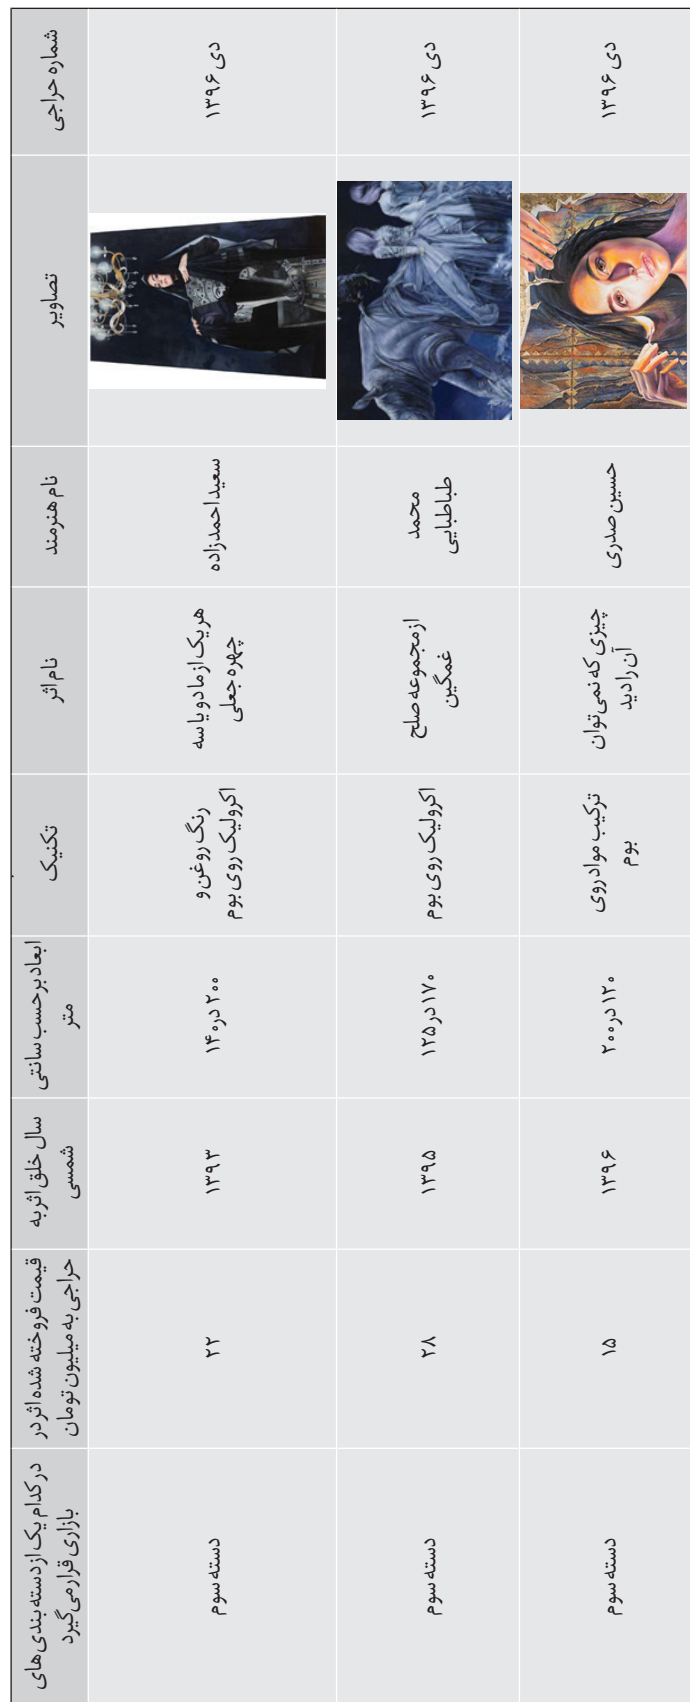 شماره حراجی
تصاویر
نام هنرمند
نام اثر
تکنیک
ابعاد بر حسب سانتی
متر
سال خلق اثر به
شمسی
قیمت فروخته شده اثر در
حراجی به میلیون تومان
در کدام یک از دسته بندی های
بازاری قرار می گیرد
دی ۱۳۹۶
سعید احمدزاده
هر یک از ما دو یا سه
چهره جعلی
رنگ روغن و
اکرولیک روی بوم
۲۰۰ در ۱۴۰
۱۳۹۳
۲۲
دسته سوم
دی ۱۳۹۶
محمد
طباطبایی
از مجموعه صلح
غمگین
اکرولیک روی بوم
۱۷۰ در ۱۲۵
۱۳۹۵
۲۸
دسته سوم
دی ۱۳۹۶
حسین صدری
چیزی که نمی توان
آن را دید
ترکیب مواد روی
بوم
۱۲۰ در ۲۰۰
۱۳۹۶
۱۵
دسته سوم